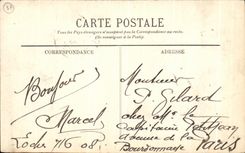 CARTE POSTALE
Tous les Pays étrangers n'acceptent pas la Correspondance au recto.
(Se renseigner à la Poste).
CORRESPONDANCE
ADRESSE
Bonjour
Marcel
7/6 08
Monsieur
Gélard
chez Mr le
Capitaine
avenue de La
Bourdonnais
PARIS